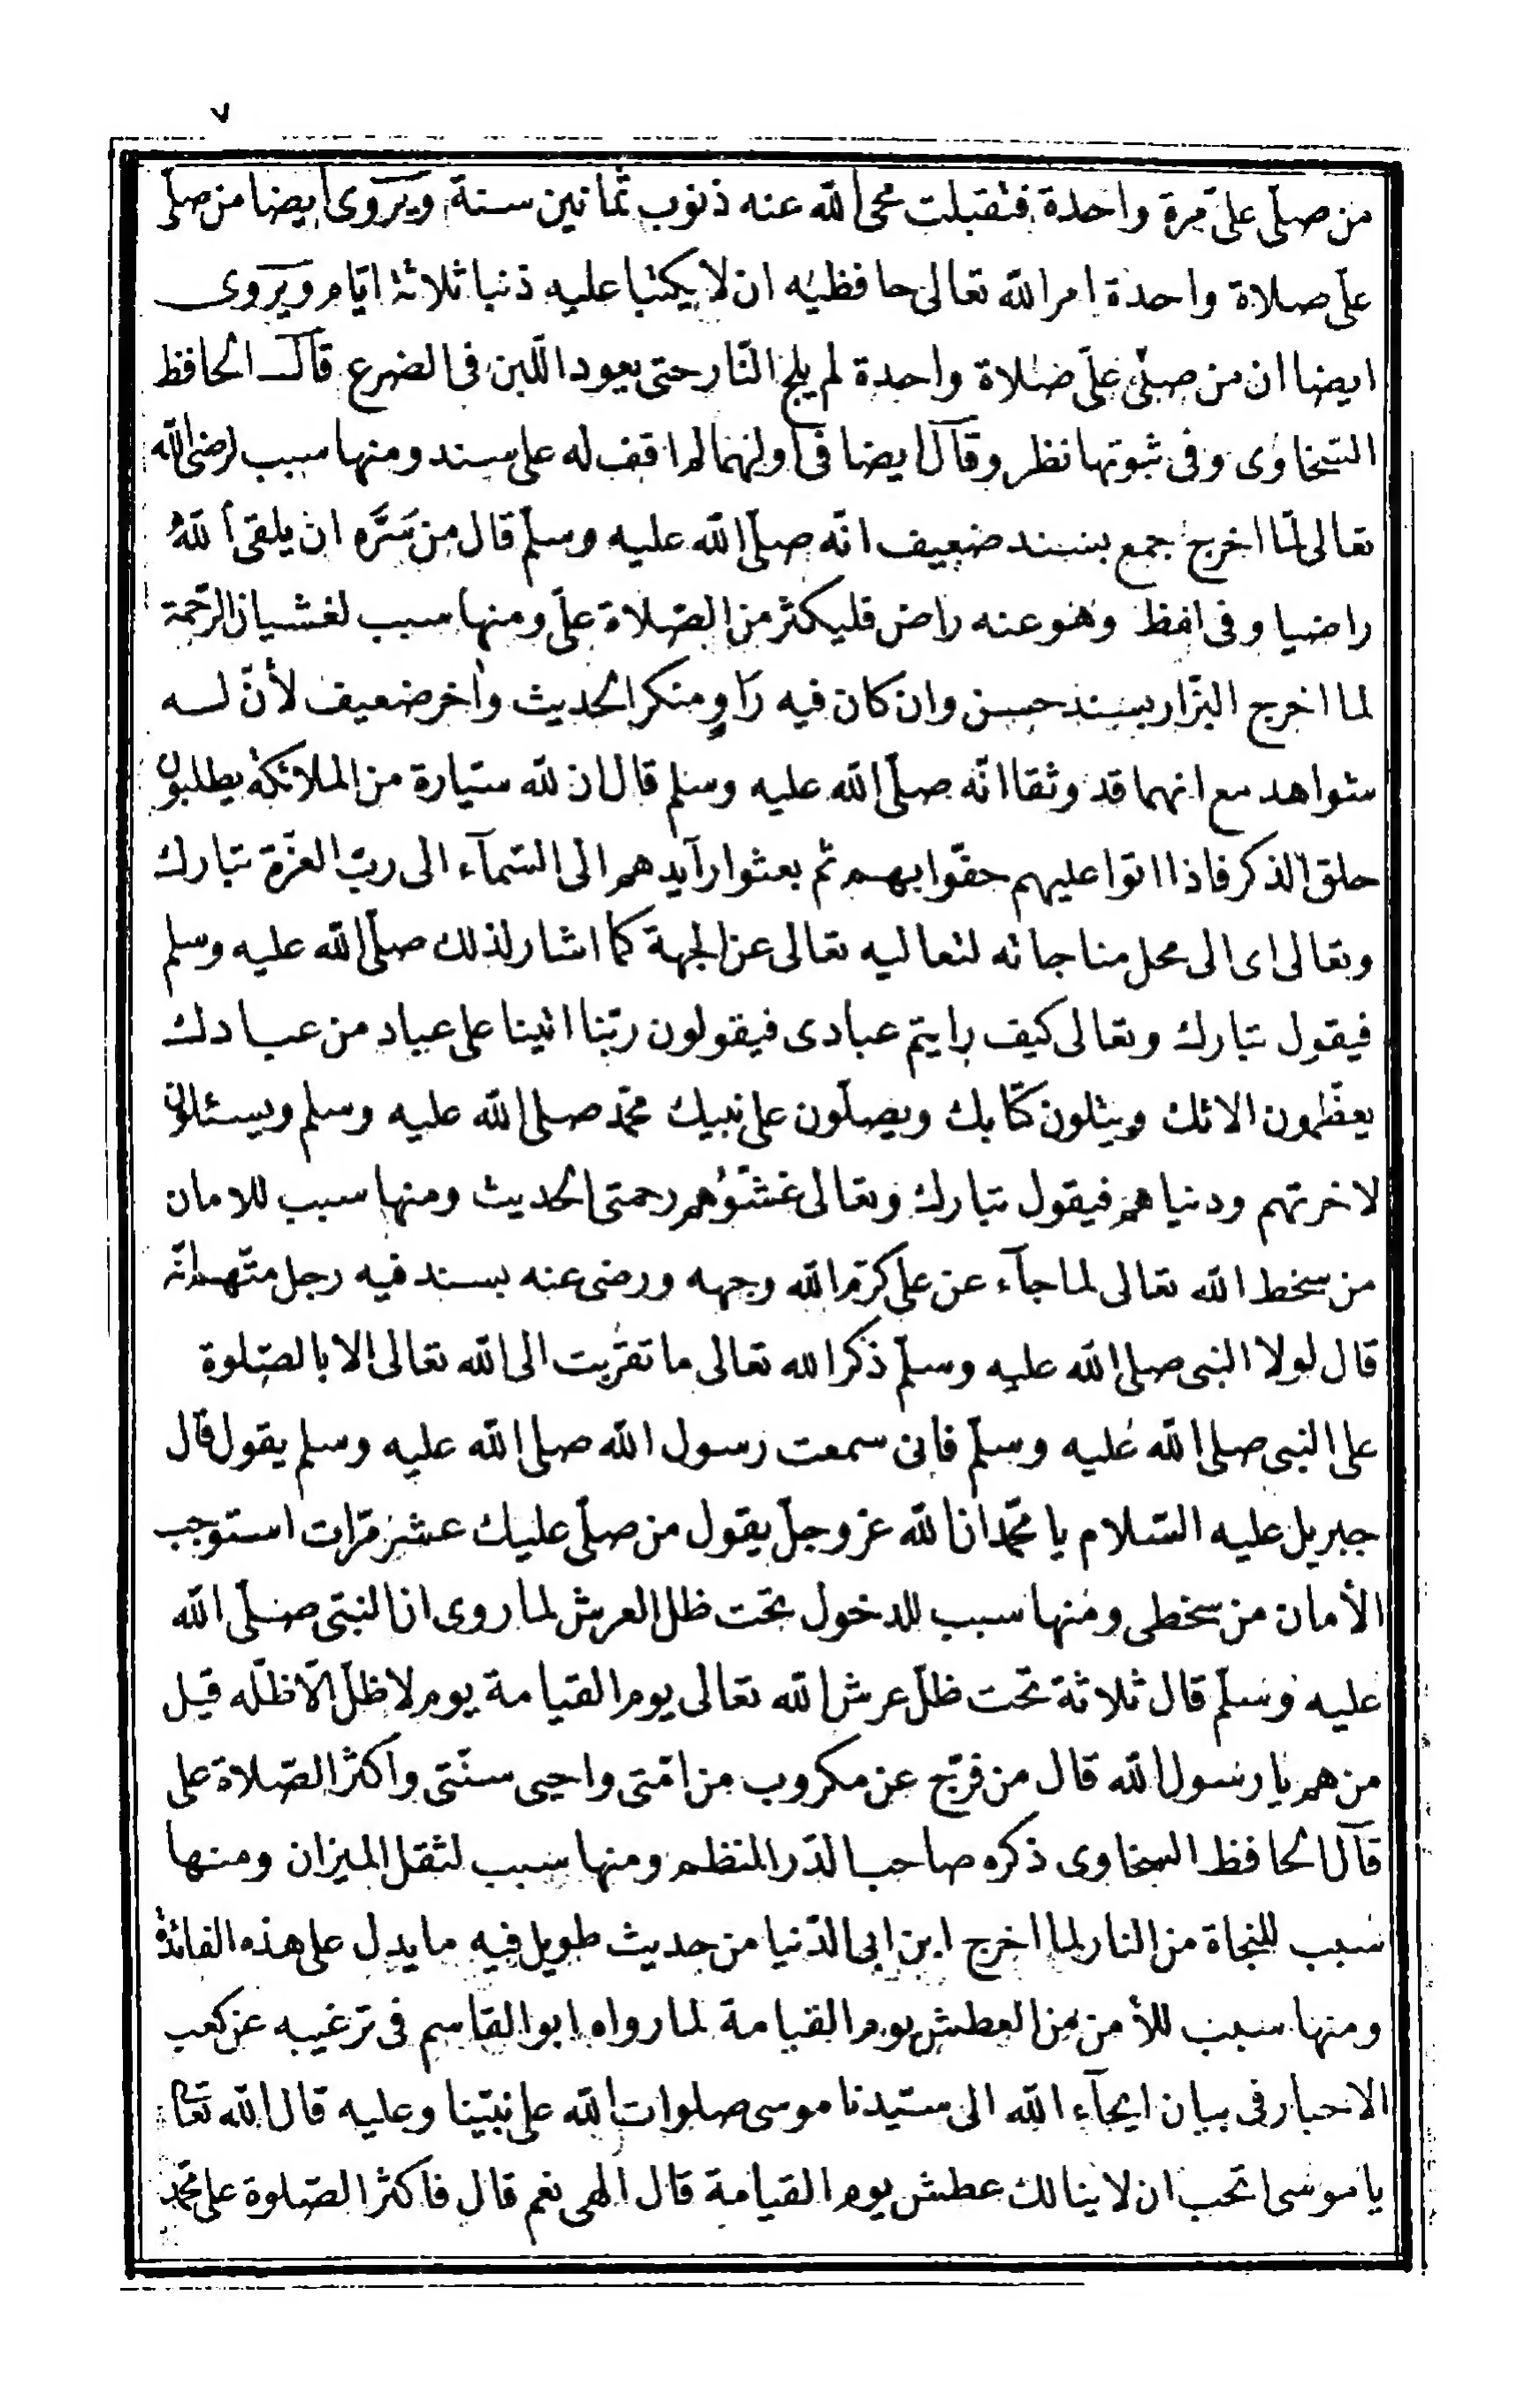 ٧
من صلّى علىّ مرة واحدة فتقبلت محى الله عنه ذنوب ثمانين سنة ويروى ايضا من صلّى
علىّ صلاة واحدة امر الله تعالى حافظيه ان لا يكتبا عليه ذنبا ثلاثة ايّام ويروى
ايضا ان من صلّى علىّ صلاة واحدة لم يلج النّار حتى يعود اللّبن فى الضرع قال الحافظ
السّخاوى وفى ثبوتها نظر وقال ايضا فى اولهما لم اقف له على سند ومنها سبب لرضى الله
تعالى لمّا اخرج جمع بسند ضعيف انّه صلّى الله عليه وسلّم قال من سَرَّه ان يلقى اللهَ
راضيا وفى لفظ وهو عنه راض فليكثر من الصّلاة علىّ ومنها سبب لغشيان الرّحمة
لما اخرج البزّار بسند حسن وان كان فيه راوٍ منكر الحديث وآخر ضعيف لأنّ له
شواهد مع انهما قد وثقا انّه صلّى الله عليه وسلم قال ان لله سيّارة من الملائكة يطلبون
حلق الذكر فاذا اتوا عليهم حفّوا بهم ثم بعثوا رآيدهم الى السّمآء الى ربّ العزّة تبارك
وتعالى اى الى محل مناجاته لتعاليه تعالى عن الجهة كما اشار لذلك صلّى الله عليه وسلم
فيقول تبارك وتعالى كيف رايتم عبادى فيقولون ربّنا اتينا على عباد من عبادك
يعظّمون الائك ويتلون كتابك ويصلّون على نبيك محمّد صلى الله عليه وسلم ويسئلون
لاخرتهم ودنياهم فيقول تبارك وتعالى غشّوهم رحمتى الحديث ومنها سبب للامان
من سخط الله تعالى لما جآء عن على كرّم الله وجهه ورضى عنه بسند فيه رجل متّهم انّه
قال لولا النبى صلى الله عليه وسلّم ذكر الله تعالى ما تقرّبت الى الله تعالى الا بالصّلوة
على النبى صلى الله عليه وسلّم فانى سمعت رسول الله صلى الله عليه وسلم يقول قال
جبريل عليه السّلام يا محمّد ان الله عز وجلّ يقول من صلّى عليك عشر مرّات استوجب
الأمان من سخطى ومنها سبب للدخول تحت ظل العرش لما روى ان النبىّ صلّى الله
عليه وسلّم قال ثلاثة تحت ظلّ عرش الله تعالى يوم القيامة يوم لا ظلّ الّا ظلّه قيل
من هم يا رسول الله قال من فرّج عن مكروب من امّتى واحيى سنّتى واكثر الصّلاة على
قال الحافظ السخاوى ذكره صاحب الدّر المنظم ومنها سبب لثقل الميزان ومنها
سبب للنجاة من النار لما اخرج ابن ابى الدّنيا من حديث طويل فيه ما يدل على هذه الفائدة
ومنها سبب للأمن من العطش يوم القيامة لما رواه ابوا لقاسم فى ترغيبه عن كعب
الاحبار فى بيان ايحآء الله الى سيّدنا موسى صلوات الله على نبيّنا وعليه قال الله تعا
يا موسى اتحب ان لا ينالك عطش يوم القيامة قال الهى نعم قال فاكثر الصّلوة على محمّد